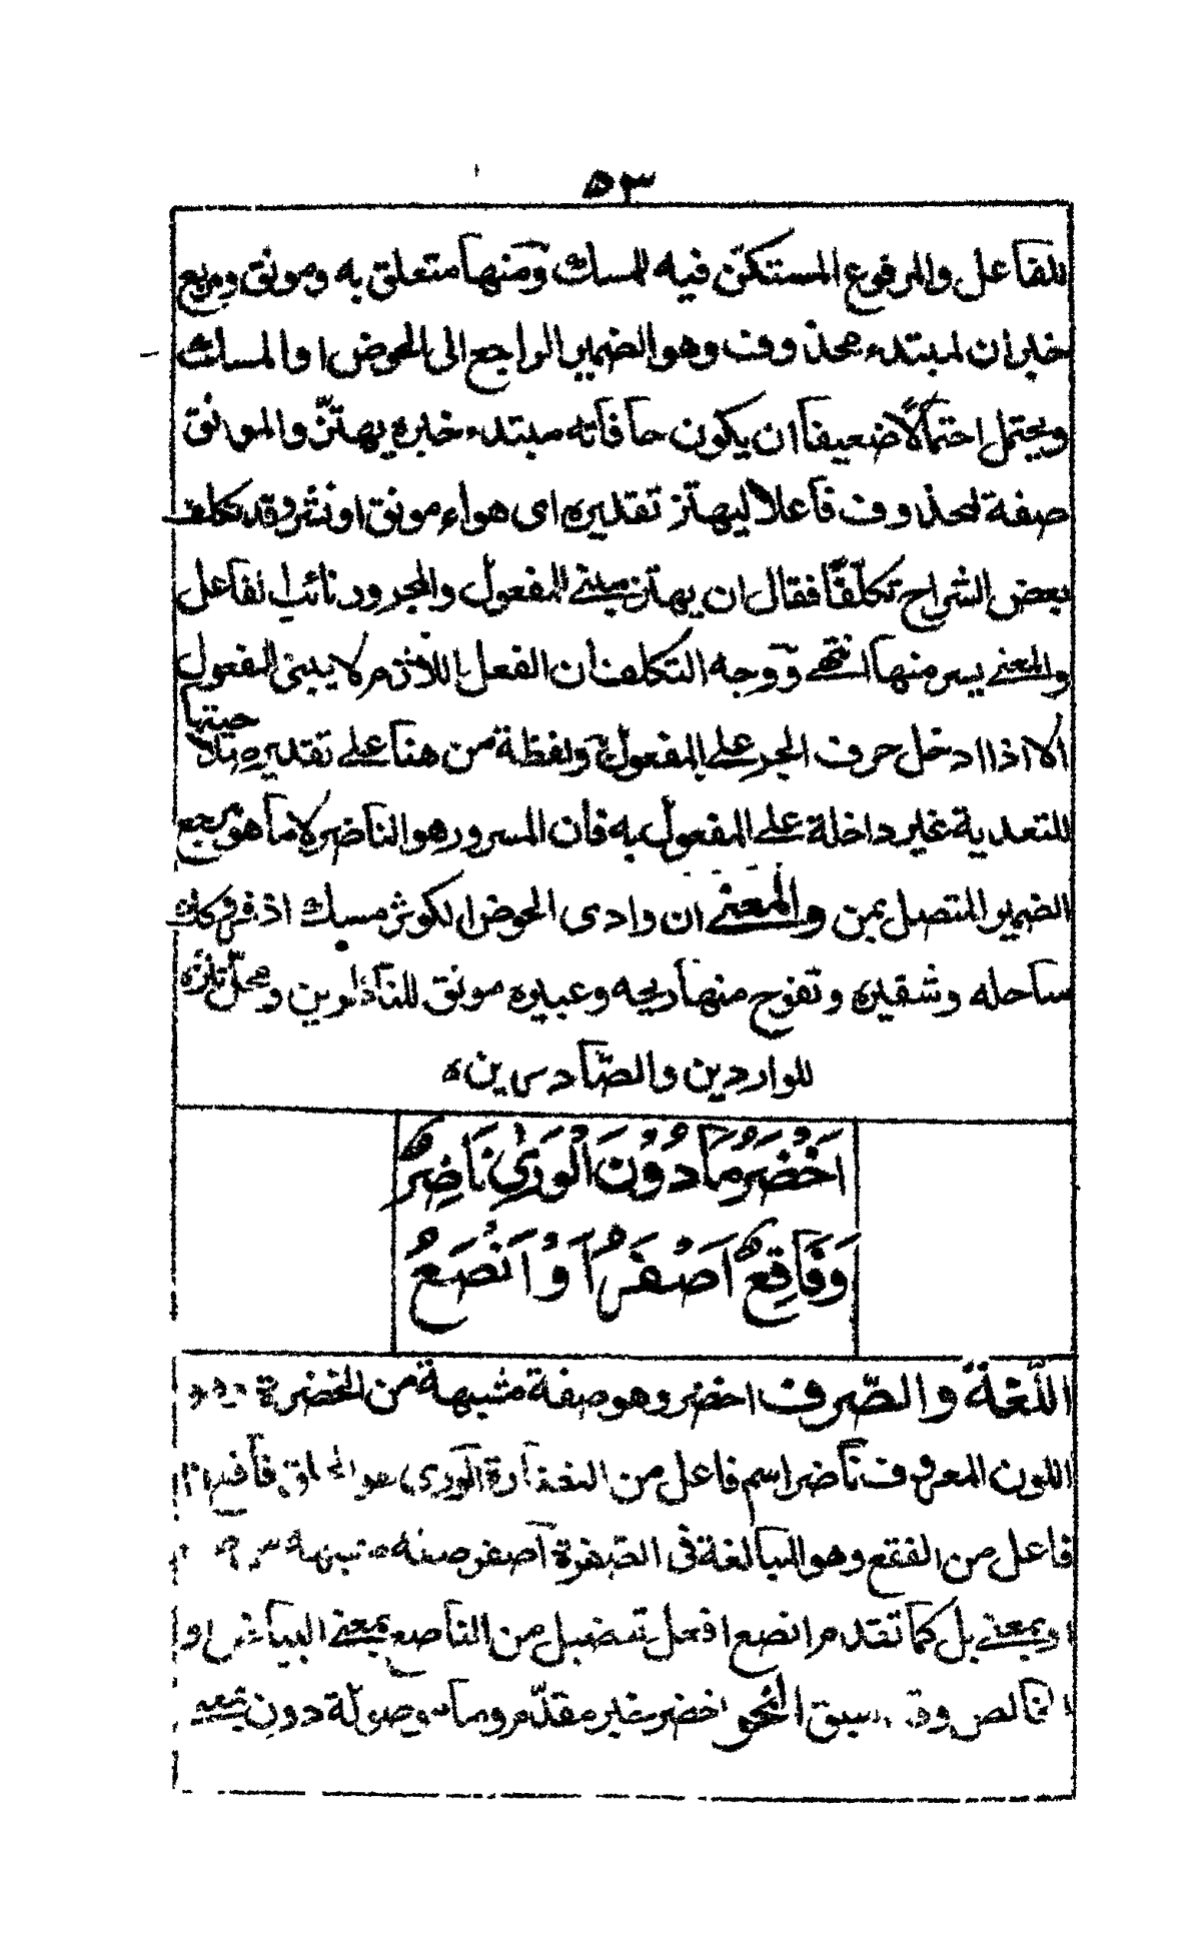 ٥٣
للفاعل والمرفوع المستكنّ فيه للمسك ومنها متعلق به ومونق ومربع
خبران لمبتدء محذوف وهو الضمير الراجع الى الحوض او المسك
ويحتمل احتمالًا ضعيفا ان يكون حافاته مبتدء خبره يهتزّ والمونق
صفة لمحذوف فاعلا ليهتز تقديره اى هواء مونق او نشر وقد تكلف
بعض الشراح تكلّفًا فقال ان يهتز مبنى المفعول والمجرور نائب الفاعل
والمعنى يسر منها انتهى ووجه التكلف ان الفعل اللازم لا يبنى المفعول
الا اذا ادخل حرف الجر على المفعول ولفظة من هنا على تقدير حيتها
للتعدية غير داخلة على المفعول به فان المسرور هو الناضر لا ما هو مرجع
الضمير المتصل بمن والمعنى ان وادى الحوض الكوثر مسك اذفر وكذلك
ساحله وشفيره وتفوح منها ريحه وعبيره مونق للناظرين ومحل
للواردين والصّادرين ه
اَخْضَرُ مَا دُوْنَ الْوَرٰى نَاضِرٌ
وَفَاقِعٌ اَصْفَرُ اَوْ اَنْصَعُ
اللّغة والصّرف اخضر وهو صفة مشبهة من الخضرة
اللون المعروف ناضر اسم فاعل من النضارة الورى هو الخلق فاقع
فاعل من الفقع وهو المبالغة فى الصفرة اصفر صفة مشبهة
او بمعنى بل كما تقدم انصع افعل تفضيل من الناصع بمعنى البياض او
الخالص وقد سبق النحو اخضر خبر مقدّم وما موصولة دون